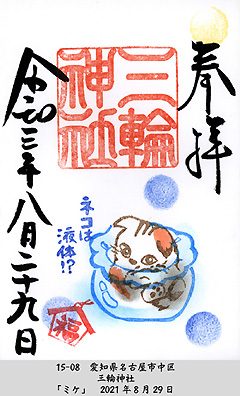 奉拝
三輪
神社
令和三年八月二十九日
ネコは
液体!?
福
15-08 愛知県名古屋市中区
三輪神社
「ミケ」 2021年8月29日